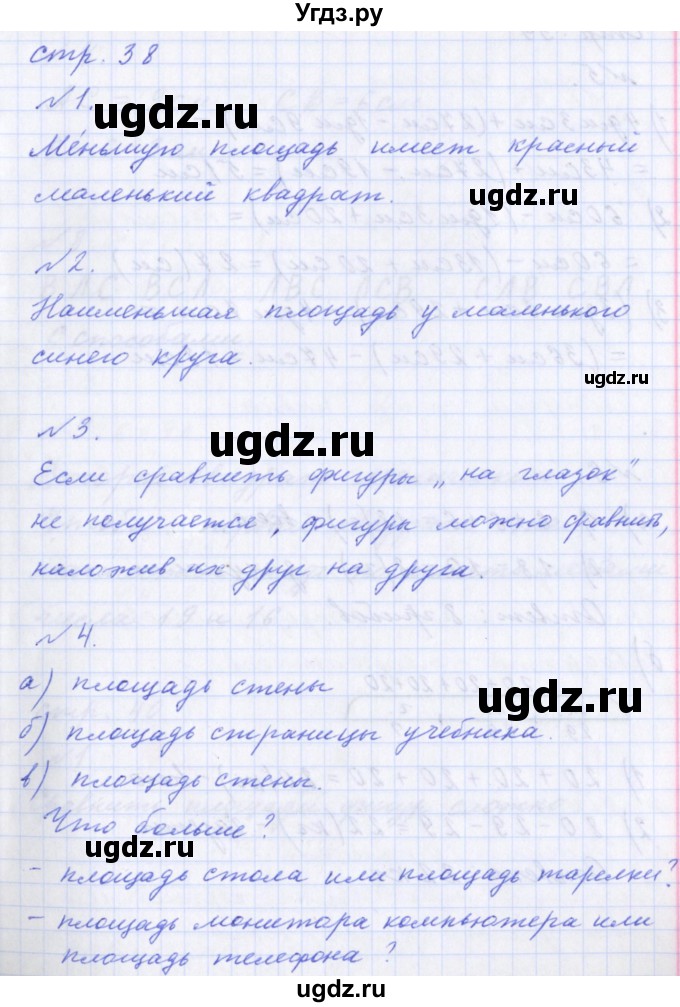 Угдз.ру
стр. 38
№1.
ugdz.ru
Ме́ньшую площадь имеет красный
маленький квадрат.
ugdz.ru
№2.
Наименьшая площадь у маленького
синего круга.
ugdz.ru
№3.
ugdz.ru
Если сравнить фигуры „на глазок"
не получается, фигуры можно сравнить,
наложив их друг на друга.
№4.
а) площадь стены
ugdz.ru
б) площадь страницы учебника.
в) площадь стены.
Что больше?
ugdz.ru
- площадь стола или площадь тарелки?
- площадь монитора компьютера или
площадь телефона?
ugdz.ru